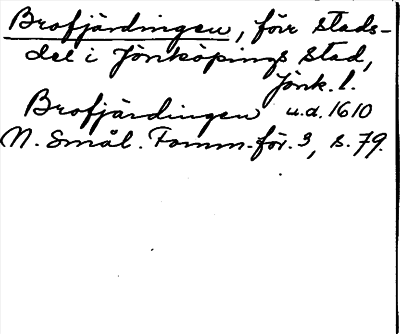 Brofjärdingen, förr stads-
del i Jönköpings stad,
Jönk. l.
Brofjärdingen u.d. 1610
N. Smål. Fornm.-för. 3, s. 79.